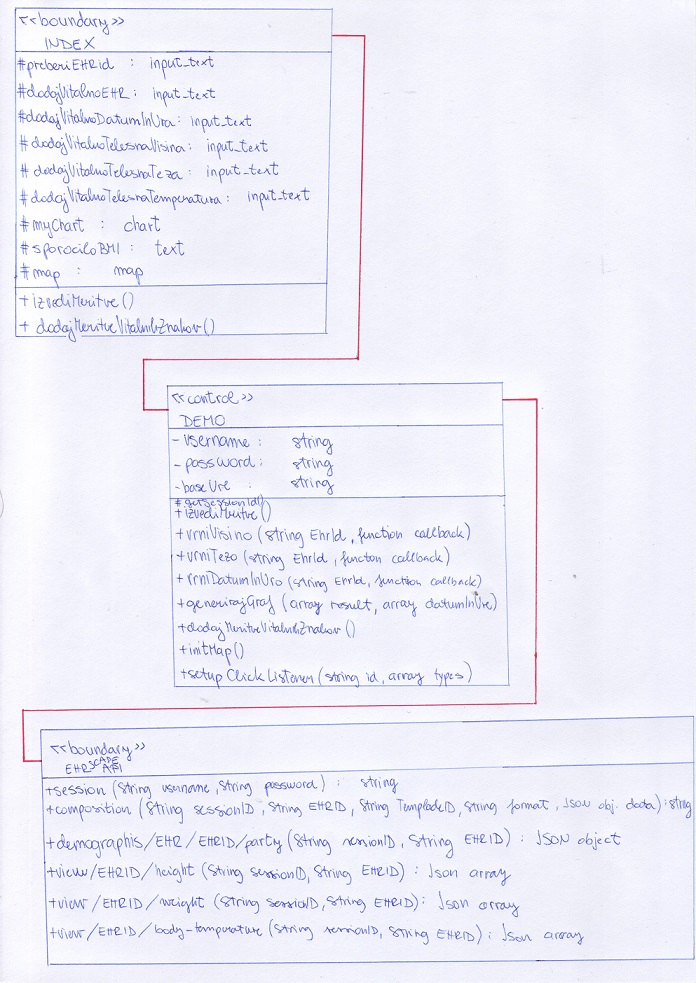 <<boundary>>
INDEX
#preberiEHRid : input_text
#dodajVitalnoEHR : input_text
#dodajVitalnoDatumInUra : input_text
#dodajVitalnoTelesnaVisina : input_text
#dodajVitalnoTelesnaTeza : input_text
#dodajVitalnoTelesnaTemperatura : input_text
#myChart : chart
#sporociloBMI : text
#map : map
+izvediMeritve()
+ dodajMeritveVitalnihZnakov()
<<control>>
DEMO
-username : string
-password : string
-baseUre : string
#getSessionId()
+izvediMeritve()
+vrniVisino (string EhrId, function callback)
+vrniTezo (string EhrId, functon callback)
+vrniDatumInUro (string EhrId, function callback)
+generirajGraf (array result, array datumInUre)
+dodajMeritveVitalnihZnakov()
+initMap()
+setupClickListener(string id, array types)
<<boundary>>
EHRSCAPE API
+session (String username, String password) : string
+composition (String sessionID, String EHRID, String TemplateID, String format, Json obj. data) : string
+demographis/EHR/EHRID/party (String sessionID, String EHRID) : JSON object
+view/EHRID/height (String sessionID, String EHRID) : Json array
+view/EHRID/weight (String sessionID, String EHRID) : Json array
+view/EHRID/body-temperature (String sessionID, String EHRID) : Json array